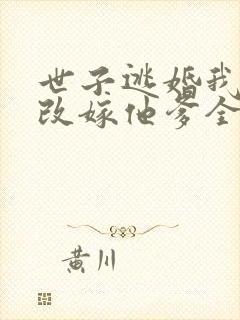 世子逃婚我
改嫁他爹全
黄川